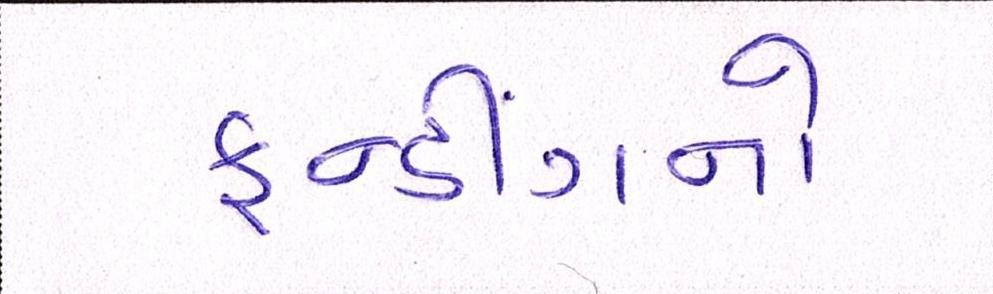 ફન્ડીંગનો